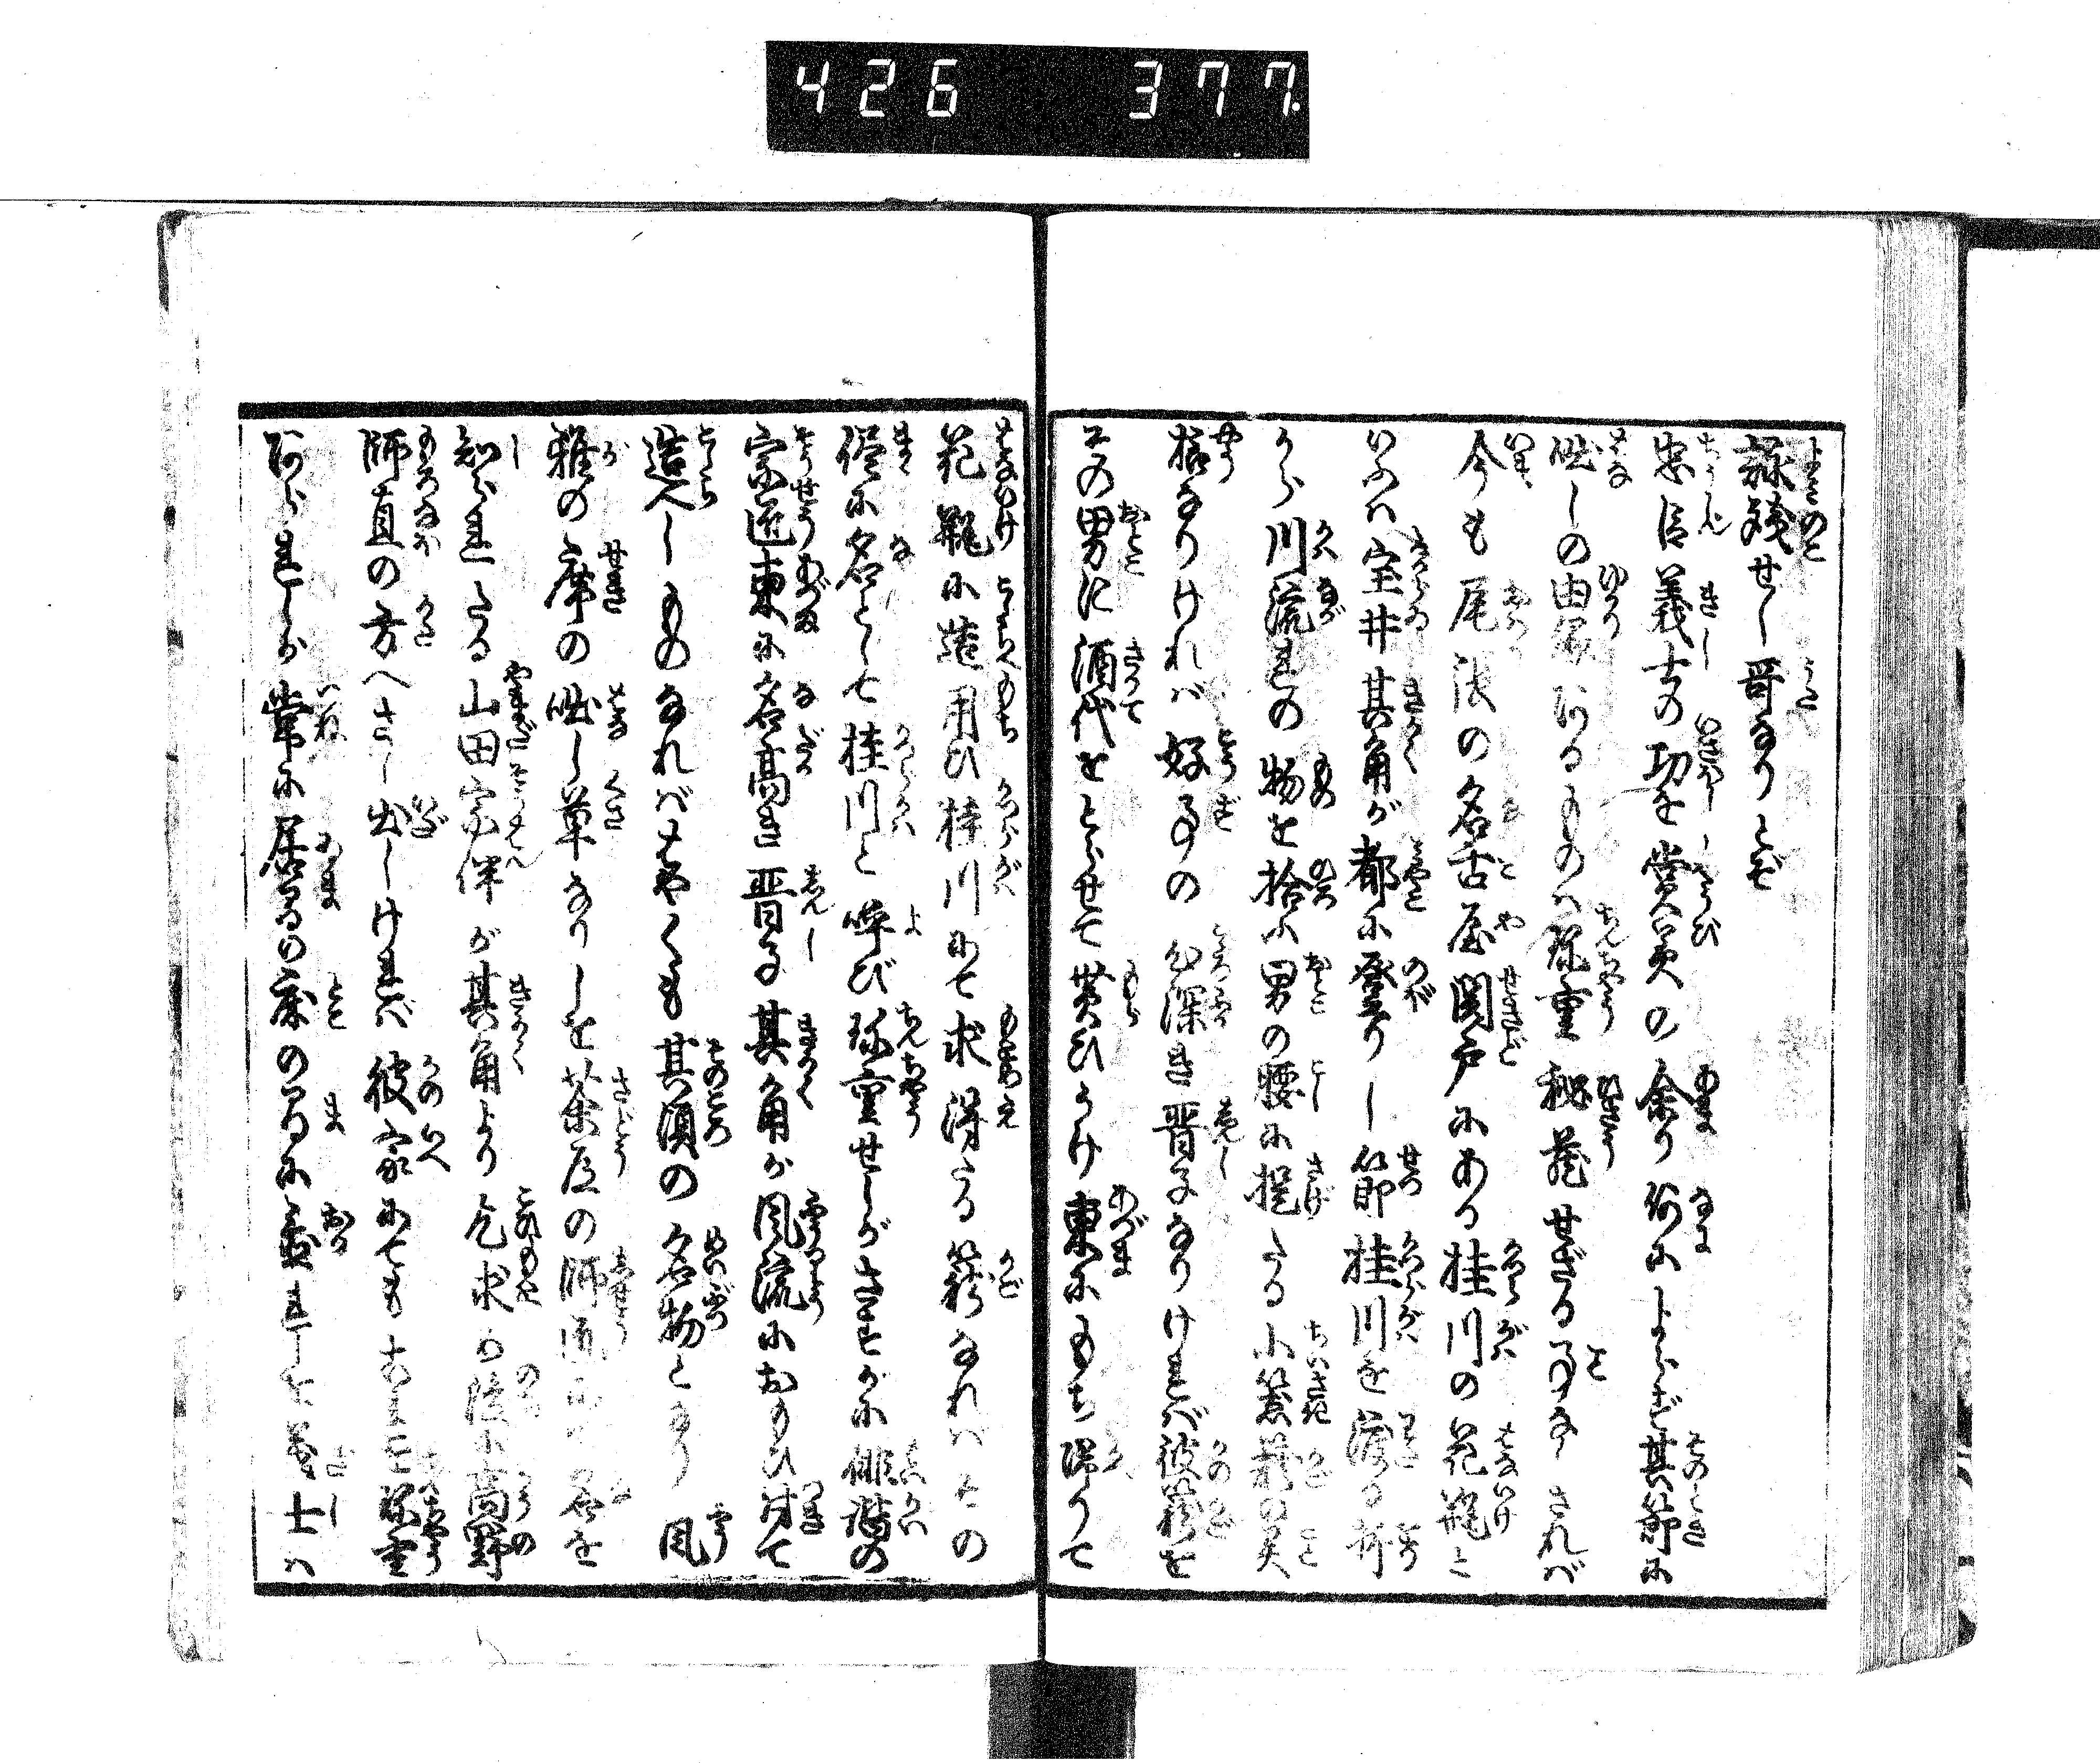 426 377
詠残せし哥なりとぞ
忠臣義士の功を賞美の余り何によらず其節に
咄しの由縁あるものハ珍重秘蔵せざる事なしされバ
今も尾張の名古屋関戸にある桂川の花瓶と
いふハ宝井其角が都に登りし節桂川を渡る折
から川流れの物を拾ふ男の腰に提たる小簔籠の
格なりければ好事の心深き晋子なりければ彼籠を
その男に酒代をとらせて貰ひうけ東にもち帰りて
花瓶に造用ひ桂川にて求得たる籠なれバその
侭に名として桂川と呼び珍重せしがさすがに俳諧の
宗匠東に名高き晋子其角が風流におもひ付て
造へしものなれバはやくも其頃の名物となり風
雅の席の咄し草なりしを茶道の師匠にて名を
知られたる山田宗伴が其角より乞求め後に高野
師直の方へさし出しければ彼家にてもあまた珍重
あられしが常に居るの床の間に置れしを義士ハ